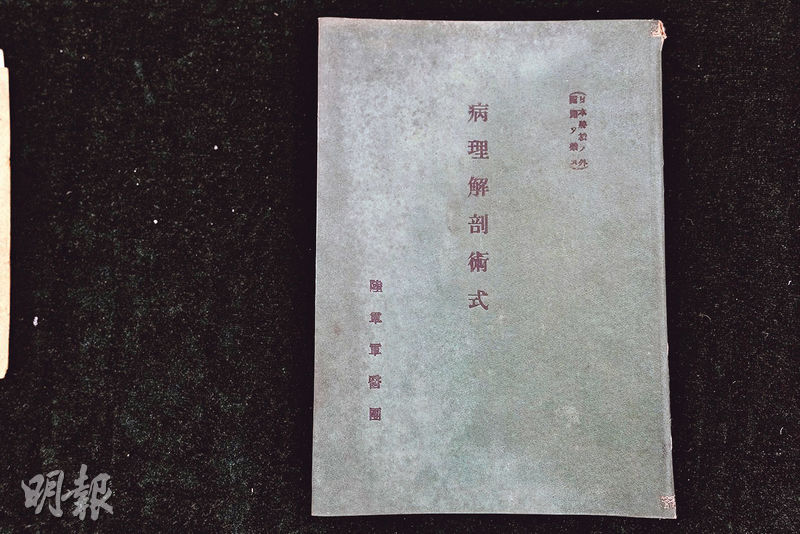 (日本將校ノ外
閲覽ヲ禁ス)
病理解剖術式
陸軍軍醫團
明報